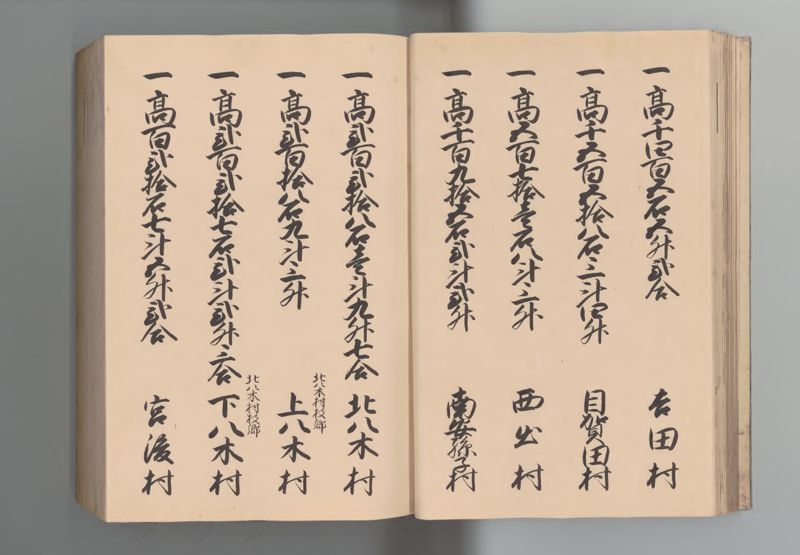 一高千四百五石五升弐合 吉田村
一高千五百五拾八石三斗四升 目賀田村
一高五百七拾壱石八斗三升 西出村
一高千百九拾五石弐斗弐升 南安孫子村
一高弐百弐拾八石壱斗九升七合 北八木村
北八木村枝郷
一高弐百拾八石九斗三升 上八木村
北八木村枝郷
一高弐百弐拾七石弐斗弐升三合 下八木村
一高百弐拾石七斗五升弐合 宮後村